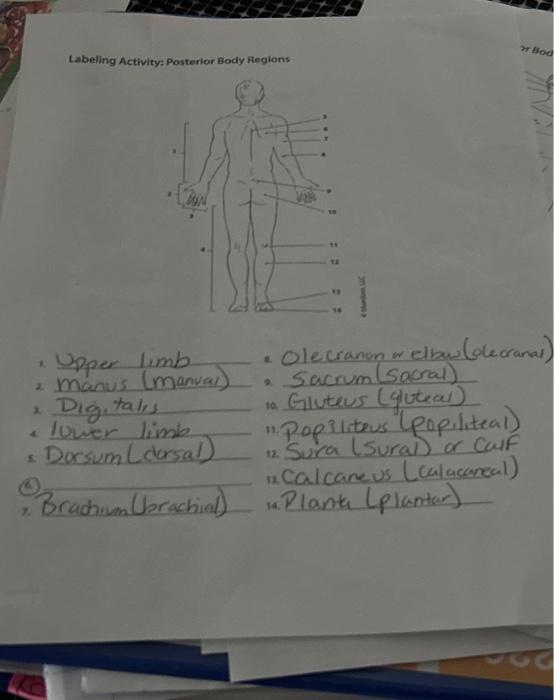 or Bod
Labeling Activity: Posterior Body Regions
5
6
7
1
8
2
9
3
10
4
11
12
13
14
1. Upper limb
2. manus (manual)
3. Digitalis
4. lower limb
5. Dorsum (dorsal)
6.
7. Brachium (brachial)
8. Olecranon or elbow (olecranal)
9. Sacrum (sacral)
10. Gluteus (gluteal)
11. Popiliteus (popiliteal)
12. Sura (sural) or Calf
13. Calcaneus (calacaneal)
14. Planta (plantar)